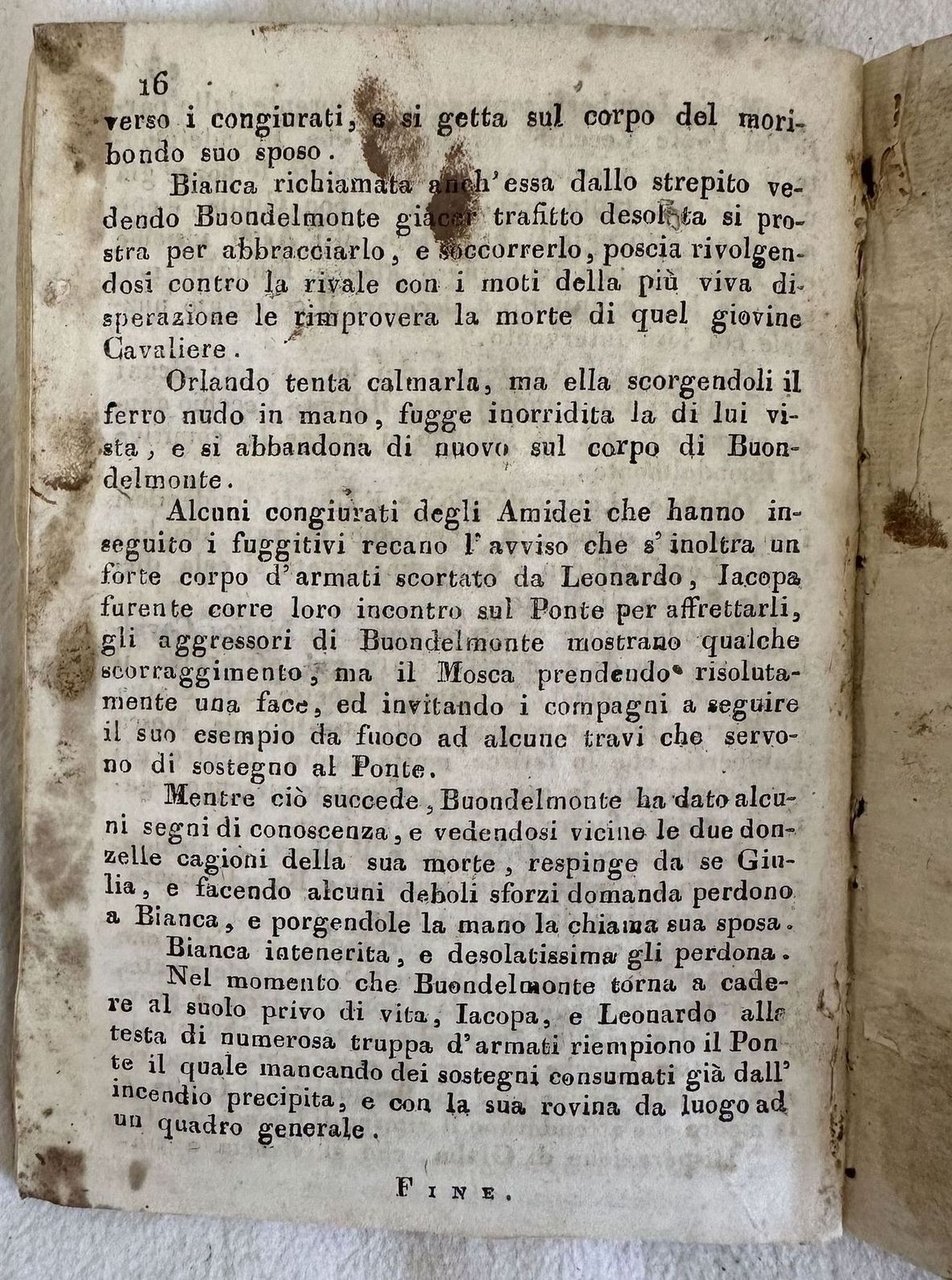 16
verso i congiurati, e si getta sul corpo del mori-
bondo suo sposo.
Bianca richiamata anch'essa dallo strepito ve-
dendo Buondelmonte giacer trafitto desolata si pro-
stra per abbracciarlo, e soccorrerlo, poscia rivolgen-
dosi contro la rivale con i moti della più viva di-
sperazione le rimprovera la morte di quel giovine
Cavaliere.
Orlando tenta calmarla, ma ella scorgendoli il
ferro nudo in mano, fugge inorridita la di lui vi-
sta, e si abbandona di nuovo sul corpo di Buon-
delmonte.
Alcuni congiurati degli Amidei che hanno in-
seguito i fuggitivi recano l'avviso che s'inoltra un
forte corpo d'armati scortato da Leonardo, Iacopa
furente corre loro incontro sul Ponte per affrettarli,
gli aggressori di Buondelmonte mostrano qualche
scorraggimento, ma il Mosca prendendo risoluta-
mente una face, ed invitando i compagni a seguire
il suo esempio da fuoco ad alcune travi che servo-
no di sostegno al Ponte.
Mentre ciò succede, Buondelmonte ha dato alcu-
ni segni di conoscenza, e vedendosi vicine le due don-
zelle cagioni della sua morte, respinge da se Giu-
lia, e facendo alcuni deboli sforzi domanda perdono
a Bianca, e porgendole la mano la chiama sua sposa.
Bianca intenerita, e desolatissima gli perdona.
Nel momento che Buondelmonte torna a cade-
re al suolo privo di vita, Iacopa, e Leonardo alla
testa di numerosa truppa d'armati riempiono il Pon
te il quale mancando dei sostegni consumati già dall'
incendio precipita, e con la sua rovina da luogo ad
un quadro generale.
FINE.